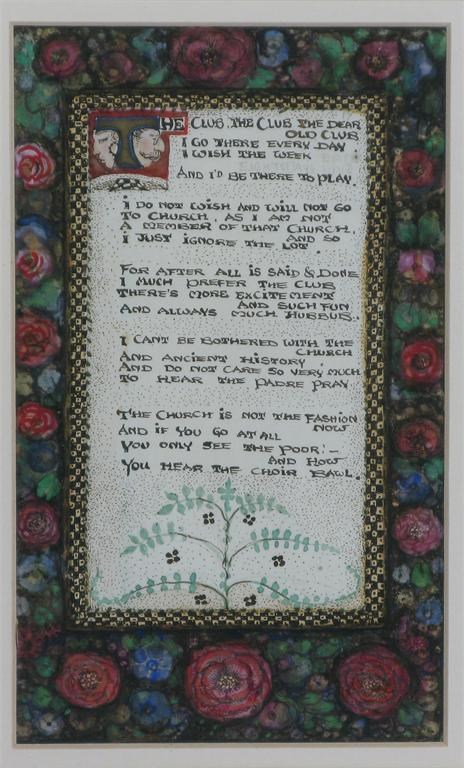 THE CLUB, THE CLUB THE DEAR
OLD CLUB
I GO THERE EVERY DAY
I WISH THE WEEK
AND I'D BE THERE TO PLAY.
I DO NOT WISH AND WILL NOT GO
TO CHURCH, AS I AM NOT
A MEMBER OF THAT CHURCH,
AND SO
I JUST IGNORE THE LOT.
FOR AFTER ALL IS SAID & DONE
I MUCH PREFER THE CLUB
THERE'S MORE EXCITEMENT
AND SUCH FUN
AND ALWAYS MUCH HUBBUB.
I CANT BE BOTHERED WITH THE
CHURCH
AND ANCIENT HISTORY
AND DO NOT CARE SO VERY MUCH
TO HEAR THE PADRE PRAY
THE CHURCH IS NOT THE FASHION
NOW
AND IF YOU GO AT ALL
YOU ONLY SEE THE POOR! —
AND HOW
YOU HEAR THE CHOIR BAWL.